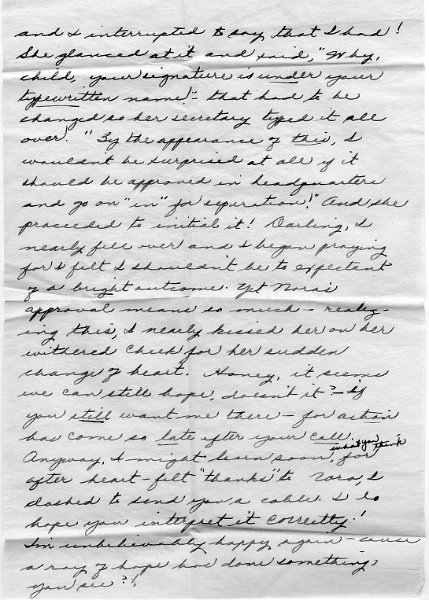 and I interrupted to say that I had!
She glanced at it and said, "Why,
child, your signature is under your
typewritten name" - that had to be
changed so her secretary typed it all
over. "By the appearance of this, I
wouldn't be surprised at all if it
should be approved in headquarters
and go on "in" for separation!" And she
proceeded to initial it! Darling, I
nearly fell over and I began praying
for I felt I shouldn't be to expectant
of a bright outcome. Yet Nora's
approval means so much - realiz-
ing this, I nearly kissed her on her
withered cheek for her sudden
change of heart. Honey, it seems
we can still hope, doesn't it? - if
you still want me there - for action
has come so late after your call.
Anyway, I might learn soon, what you think
for after heart-felt "thanks" to Nora, I
dashed to send you a cable. I do
hope you interpret it correctly!
I'm unbelievably happy again - cause
a ray of hope has done something,
you see?!